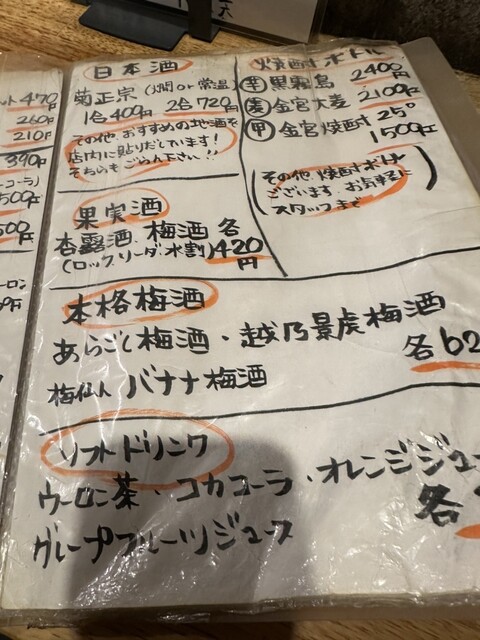 ット 470円
260円
210円
390円
コーラ)
500円
500円
日本酒
菊正宗 (燗 or 常温)
1合 409円 2合 720円
その他、おすすめの地酒を
店内に貼りだしています!
そちらもごらん下さい!!
焼酎ボトル
芋 黒霧島 2400円
麦 金宮大麦 2100円
甲 金宮焼酎 25°
1500円
(その他 焼酎ボトル
ございます。お気軽に
スタッフまで)
果実酒
杏露酒、梅酒 各
(ロック、ソーダ、水割) 420
円
本格梅酒
あらごし梅酒・越乃景虎梅酒
梅仙人 バナナ梅酒
各 62
ソフトドリンク
ウーロン茶・コカコーラ・オレンジジュー
グレープフルーツジュース
各